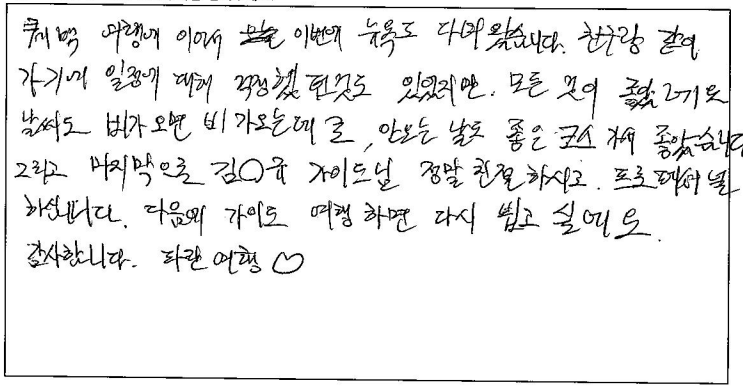 퀘벡 여행에 이어서 이번에 뉴욕도 다녀 왔습니다. 친구랑 같이
가기에 일정에 대해 걱정했던것도 있었지만. 모든 것이 좋았고
날씨도 비가오면 비가오는데로, 안오는 날도 좋은 코스 가서 좋았습니다
그리고 마지막으로 김○규 가이드님 정말 친절하시고. 프로페셔널
하십니다. 다음에 가이드 여행하면 다시 뵙고 싶네요.
감사합니다. 파란여행 ♡